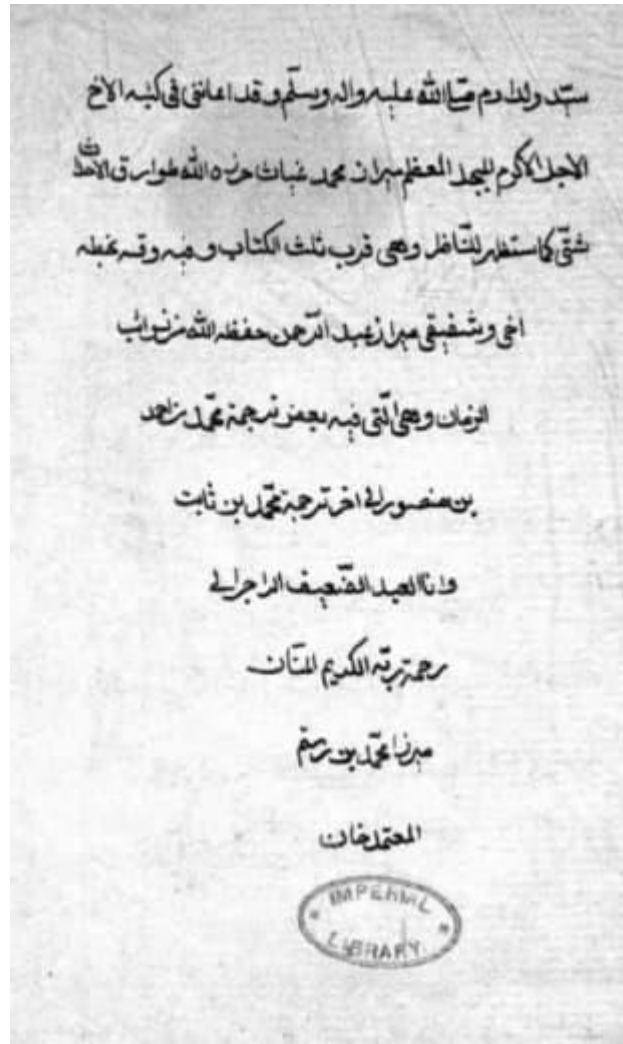 سيد ولد ادم صلى الله عليه واله وسلم وقد اعانني في كتبه الاخ
الاجل الاكرم المعظم ميرزا محمد غياث الله طوارق
شتى كما ستظهر للناظر وهي قرب ثلث الكتاب وفيه وقد
اخي وشفيقي ميرزا عبد الرحمن حفظه الله من نوائب
الزمان وهي التي فيه بعض ترجمة محمد
بن منصور الى اخر ترجمة محمد بن ثابت
وانا العبد الضعيف الراجي الى
رحمة ربه الكريم المنان
ميرزا محمد بن رستم
المعتمد خان
IMPERIAL
LIBRARY.